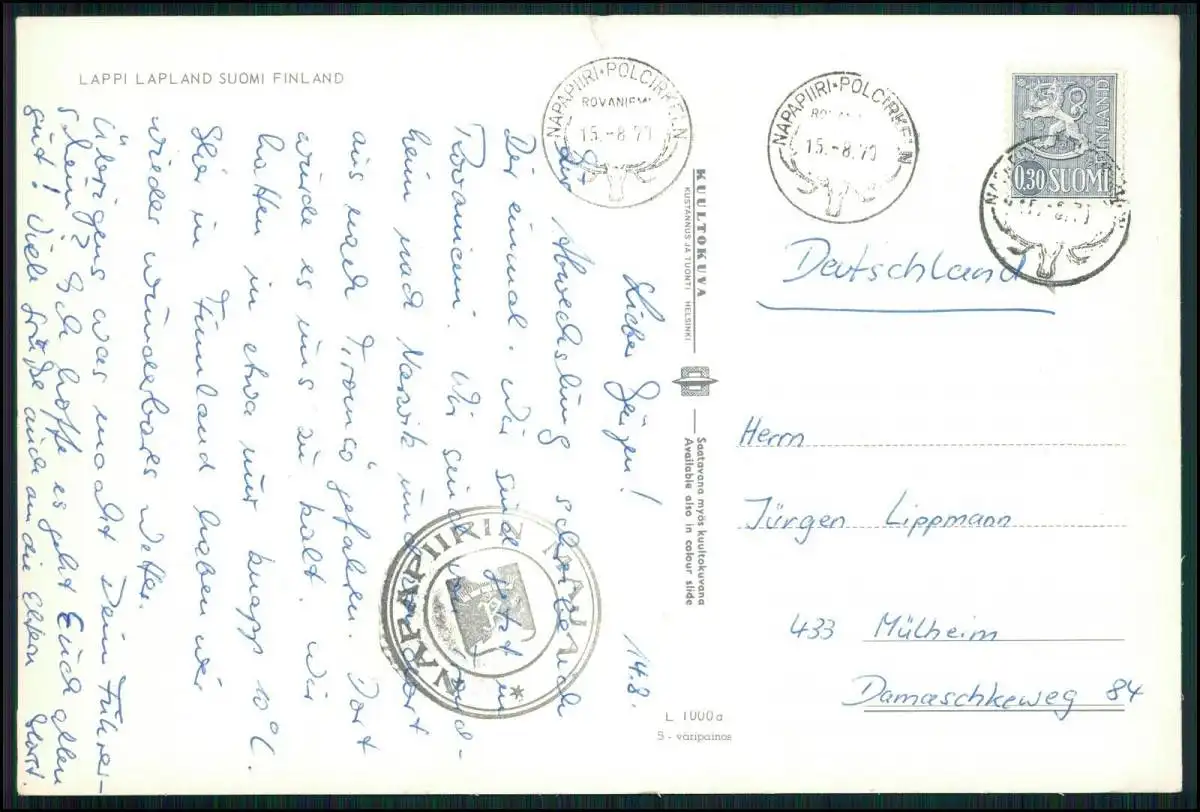 LAPPI LAPLAND SUOMI FINLAND
14.8.
Lieber Jürgen!
Zur Abwechslung schreibe auch
Dir einmal. Wir sind jetzt in
Rovaniemi. Wir sind von
hein nach Narvik und
aus nach Tromsö gefahren. Dort
wurde es uns zu kalt. Wir
hatten in etwa nur knapp 10°C.
Hier in Finnland haben wir
wieder wunderbares Wetter.
Übrigens was macht Dein Führer-
schein? Ich hoffe es geht Euch allen
gut! Viele Grüße auch an die Eltern Horst.
NAPAPIIRI·POLCIRKELN
ROVANIEMI
15.-8.70
NAPAPIIRI·POLCIRKELN
15.-8.70
0,30 SUOMI
FINLAND
KUULTOKUVA
KUSTANNUS JA TUONTI HELSINKI
Saatavana myös kuultokuvana
Available also in colour slide
NAPAPIIRIN MAJA
L 1000a
5 - väripainos
Deutschland
Herrn
Jürgen Lippmann
433 Mülheim
Damaschkeweg 84